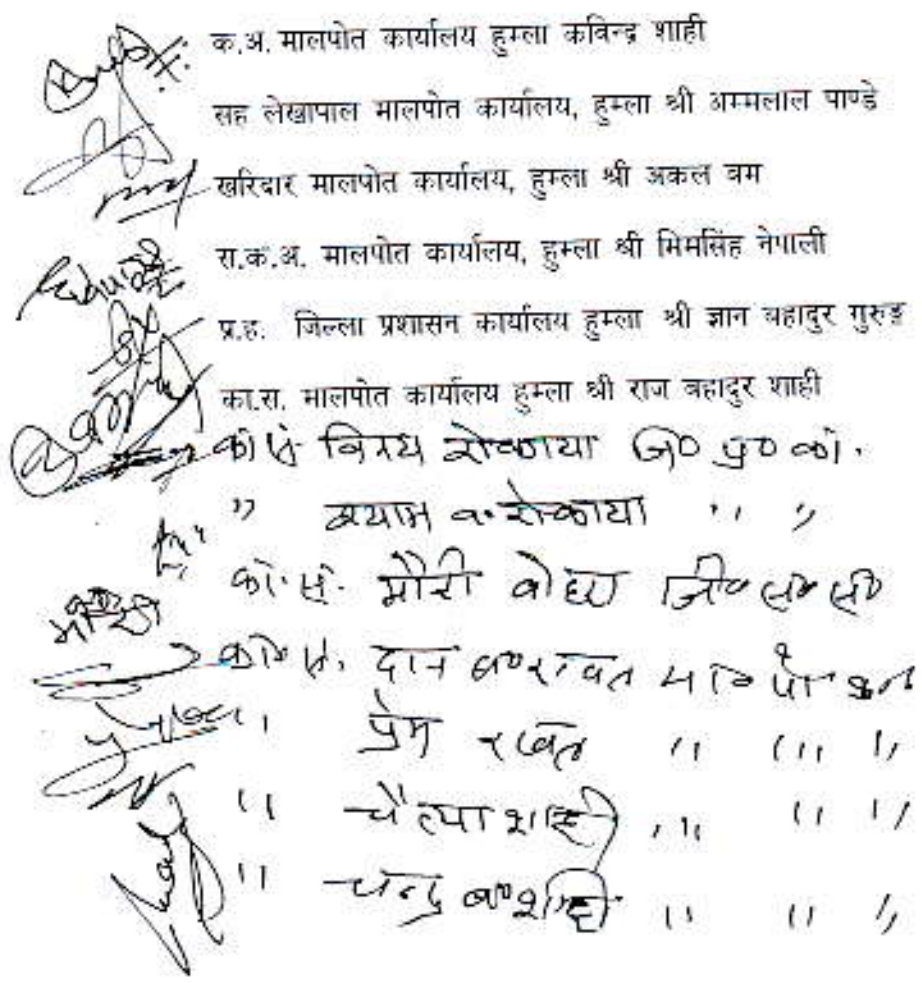 क.अ. मालपोत कार्यालय हुम्ला कविन्द्र शाही
सह लेखापाल मालपोत कार्यालय, हुम्ला श्री अम्मलाल पाण्डे
खरिदार मालपोत कार्यालय, हुम्ला श्री अकल बम
रा.क.अ. मालपोत कार्यालय, हुम्ला श्री भिमसिंह नेपाली
प्र.ह. जिल्ला प्रशासन कार्यालय हुम्ला श्री ज्ञान बहादुर गुरुङ्ग
का.स. मालपोत कार्यालय हुम्ला श्री राज बहादुर शाही
का.स. विनय रोकाया जि० प्र० का.
" श्याम ब. रोकाया " "
का.स. गौरी बोहरा
का०स. दान ब० रावत
" प्रेम रावत " " "
" चैत्या शाही " " "
" चन्द्र ब० शाही " " "